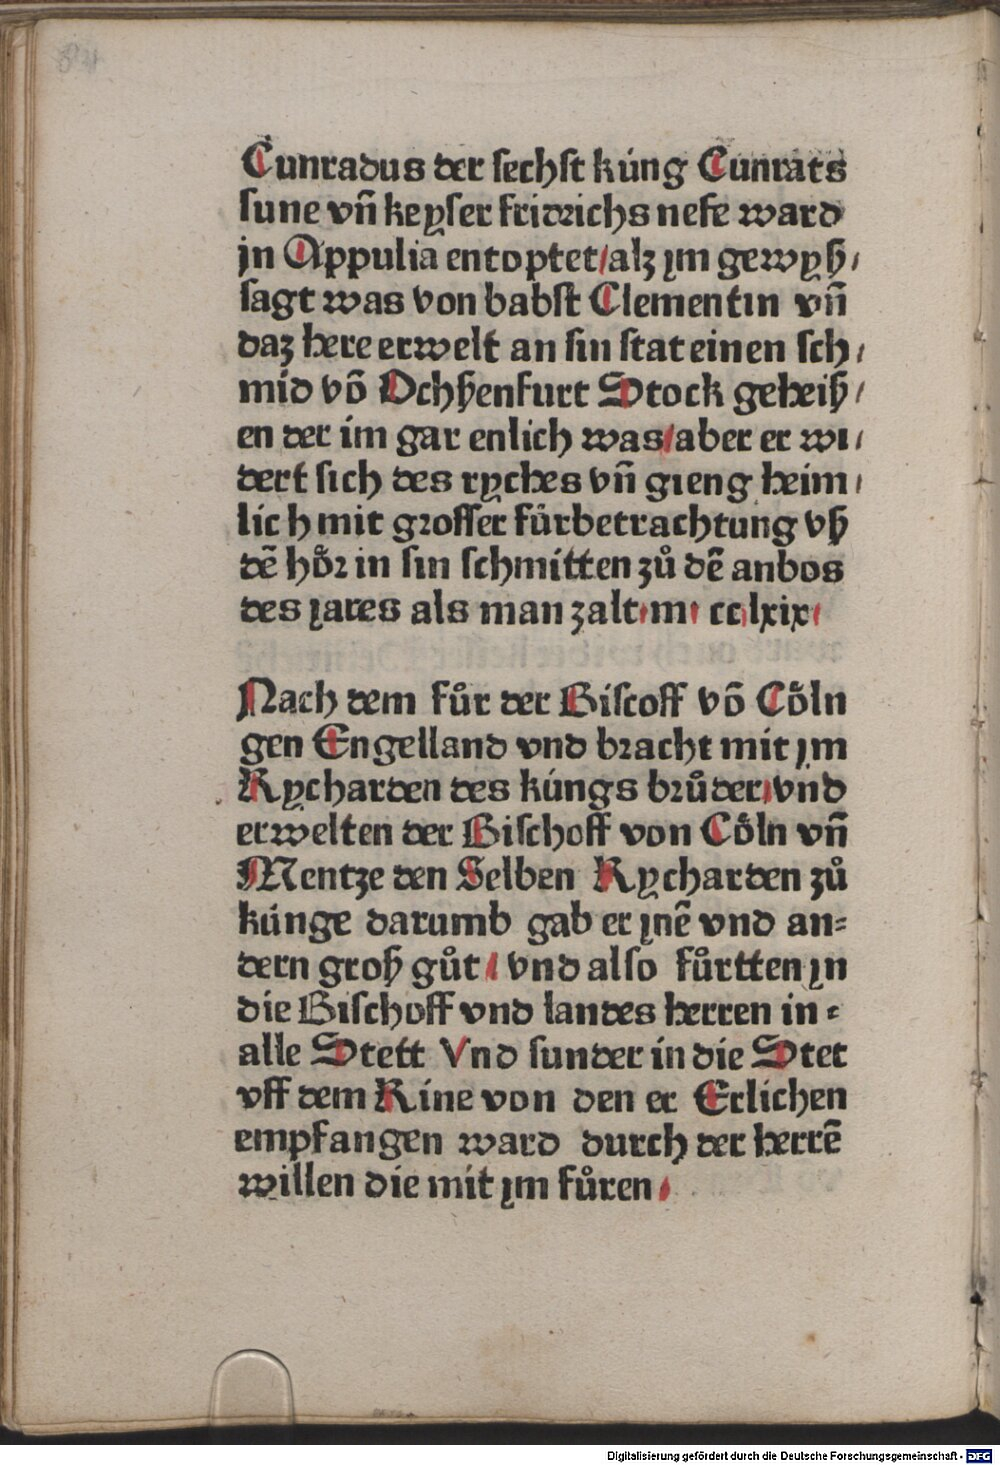 84
Cunradus der sechst kúng Cunrats
sune vñ keyser fridrichs nefe ward
jn Appulia entoptet/alz ym gewyß/
sagt was von babst Clementin vñ
daz here erwelt an sin stat einen sch/
mid võ Ochßenfurt Stock geheiß/
en der im gar enlich was/aber er wi/
dert sich des ryches vñ gieng heim/
lich mit grosser fůrbetrachtung vß
dẽ hoͤr in sin schmitten zů dẽ anbos
des iares als man zalt·m· cc·lxix·
Nach dem fůr der Biscoff võ Coͤln
gen Engelland vnd bracht mit jm
Rycharden des kúngs brůder/vnd
erwelten der Bischoff von Coͤln vñ
Mentze den Selben Rycharden zů
kúnge darumb gab er jnẽ vnd an=
dern groß gůt/ vnd also fůrtten jn
die Bischoff vnd landes herren in=
alle Stett Vnd sunder in die Stet
vff dem Rine von den er Erlichen
empfangen ward durch der herrẽ
willen die mit jm fůren/
Digitalisierung gefördert durch die Deutsche Forschungsgemeinschaft - DFG